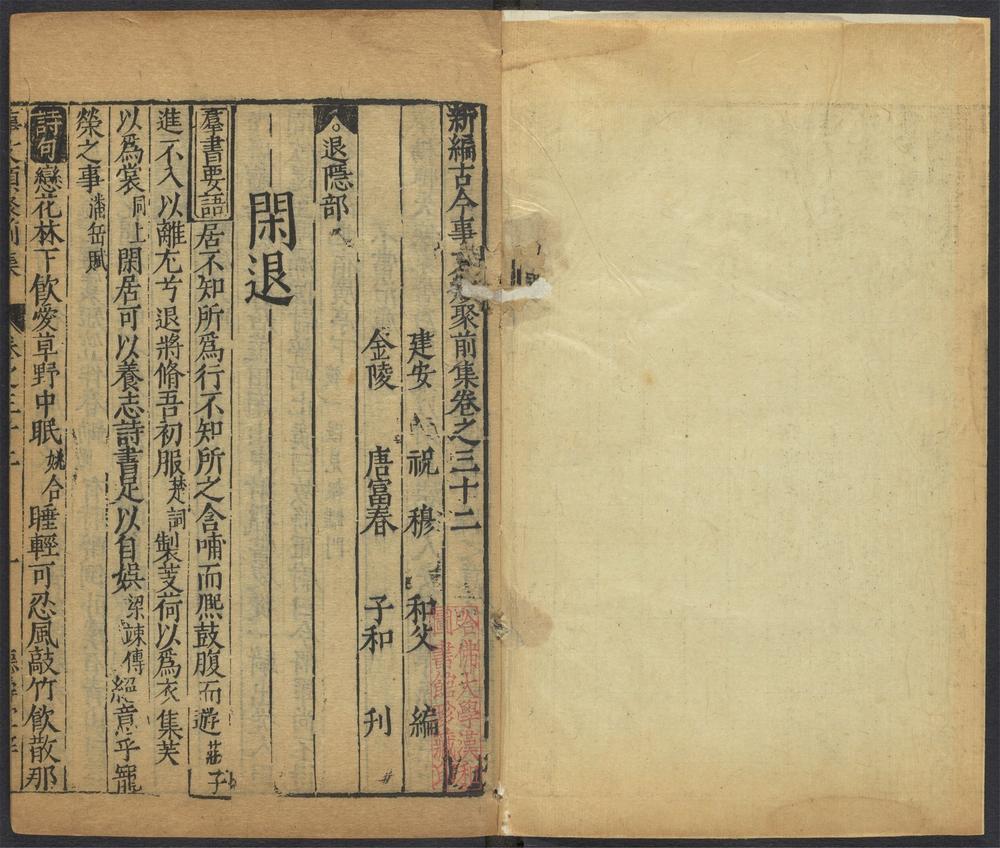 新編古今事文類聚前集卷之三十二
建安 祝 穆 和父 編
金陵 唐富春 子和 刋
退隱部
閑退
羣書要語 居不知所爲行不知所之含哺而熈鼓腹而遊 莊子
進不入以離尤兮退將脩吾初服 楚詞 製芰荷以爲衣集芙
以爲裳 同上 閑居可以養志詩書足以自娛 梁竦傳 絕意乎寵
榮之事 潘岳賦
詩句 戀花林下飲愛草野中眠 姚合 睡輕可忍風敲竹飲散那
事文類聚前集 卷之三十二
哈佛大學漢和圖書館珍藏印